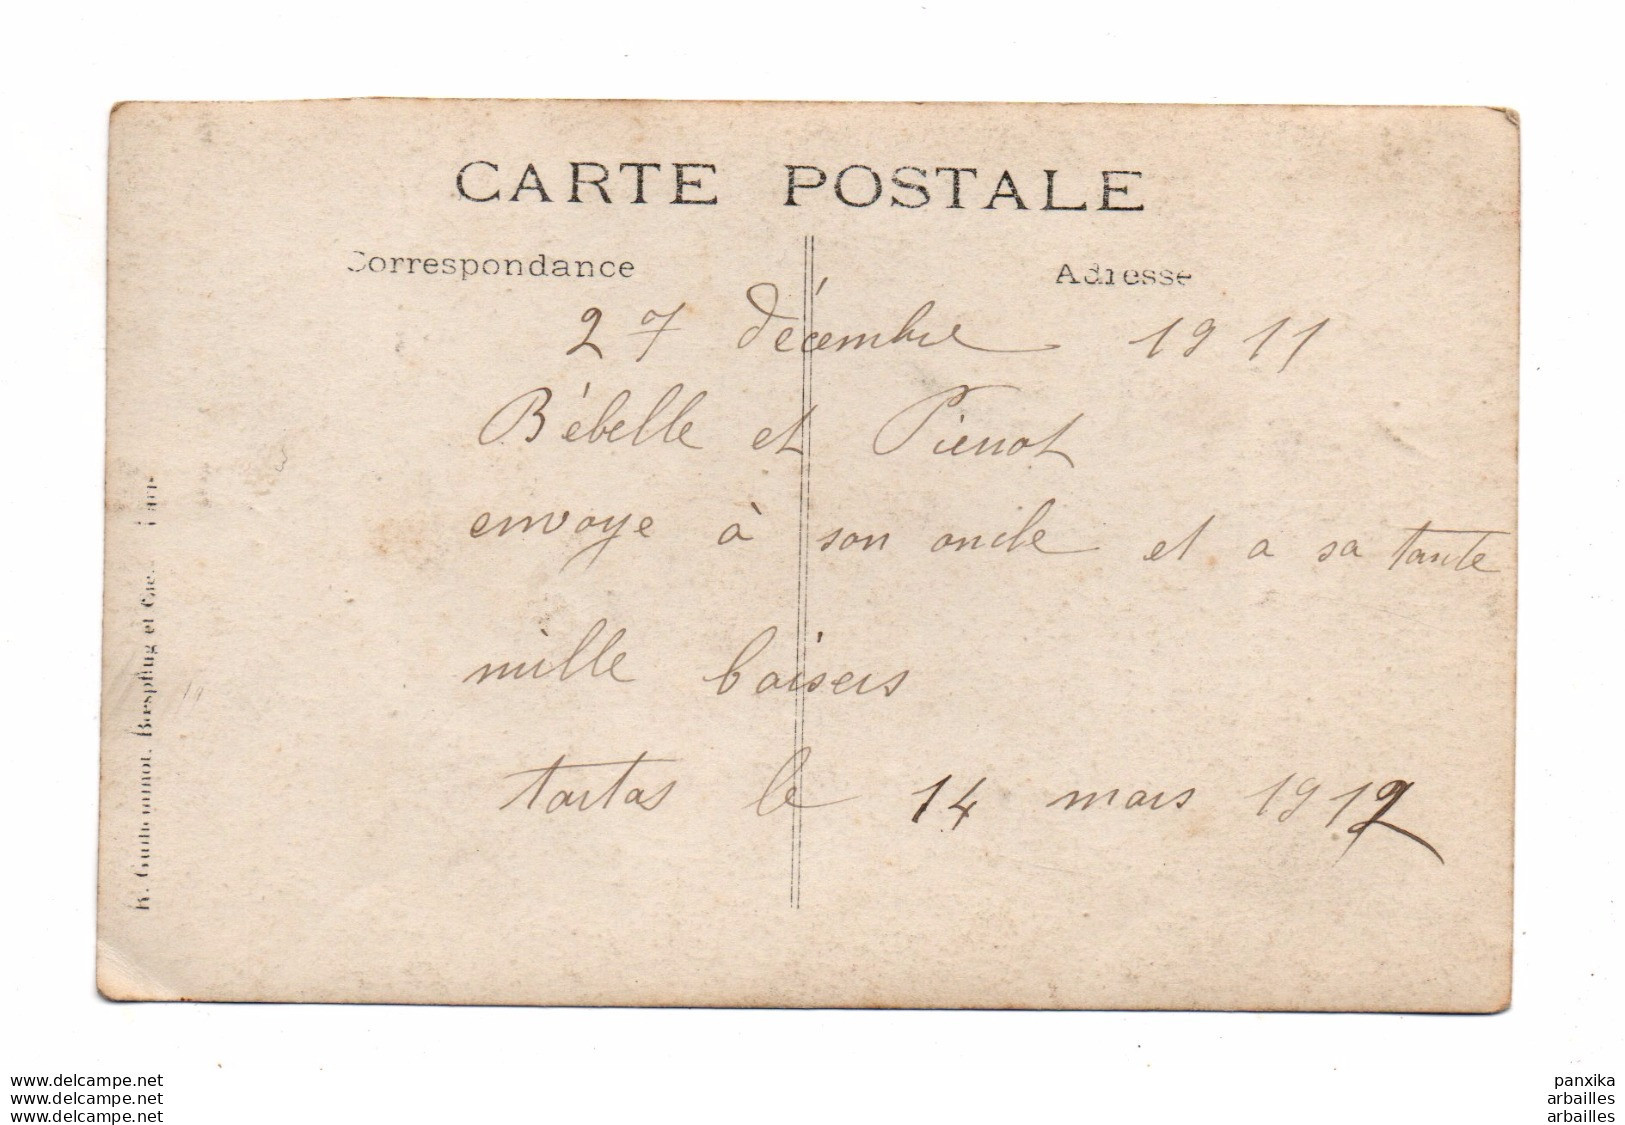 CARTE POSTALE
Correspondance
Adresse
27 décembre 1911
Bébelle et Pierrot
envoye à son oncle et a sa tante
mille baisers
tartas le 14 mars 1912
R. Guilleminot, Bœspflug et Cie. - Paris
www.delcampe.net
www.delcampe.net
www.delcampe.net
panxika
arbailles
arbailles